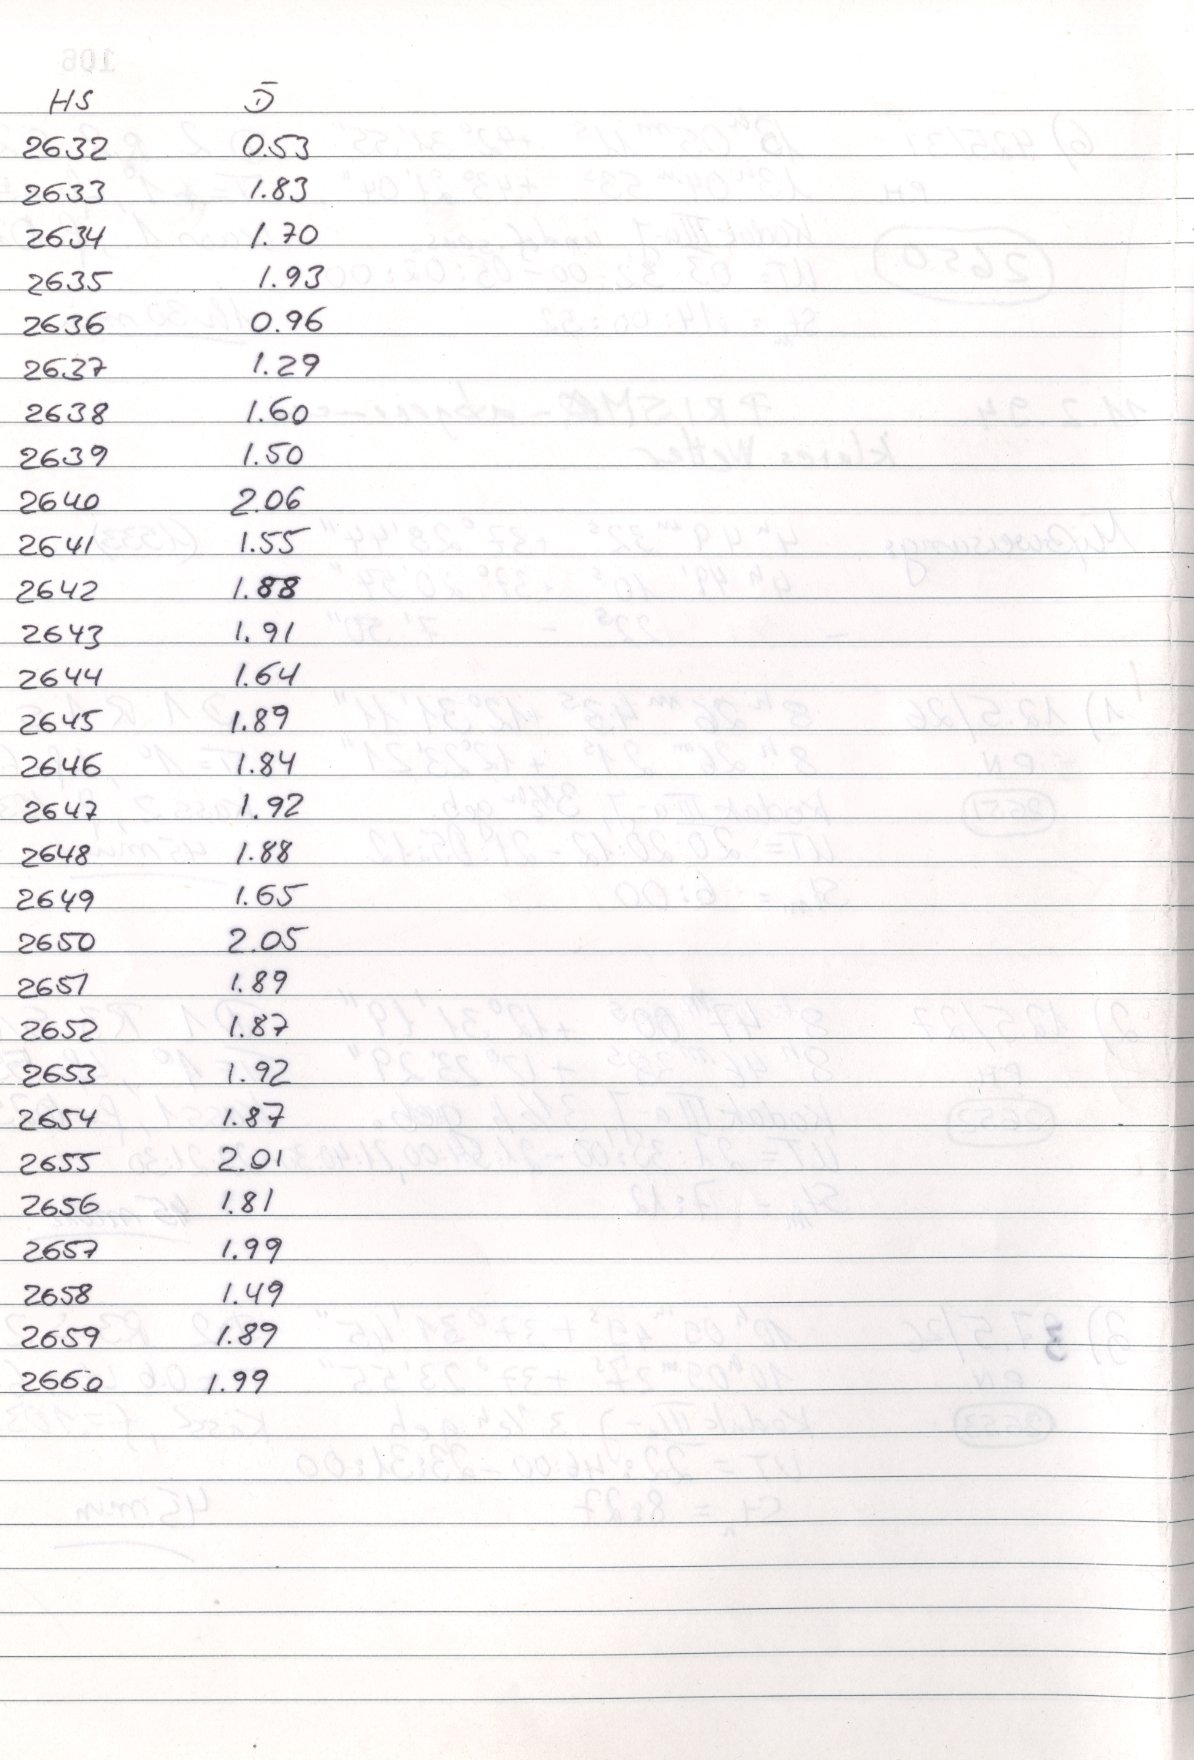 HS D̄
2632 0.53
2633 1.83
2634 1.70
2635 1.93
2636 0.96
2637 1.29
2638 1.60
2639 1.50
2640 2.06
2641 1.55
2642 1.88
2643 1.91
2644 1.64
2645 1.89
2646 1.84
2647 1.92
2648 1.88
2649 1.65
2650 2.05
2651 1.89
2652 1.87
2653 1.92
2654 1.87
2655 2.01
2656 1.81
2657 1.99
2658 1.49
2659 1.89
2660 1.99